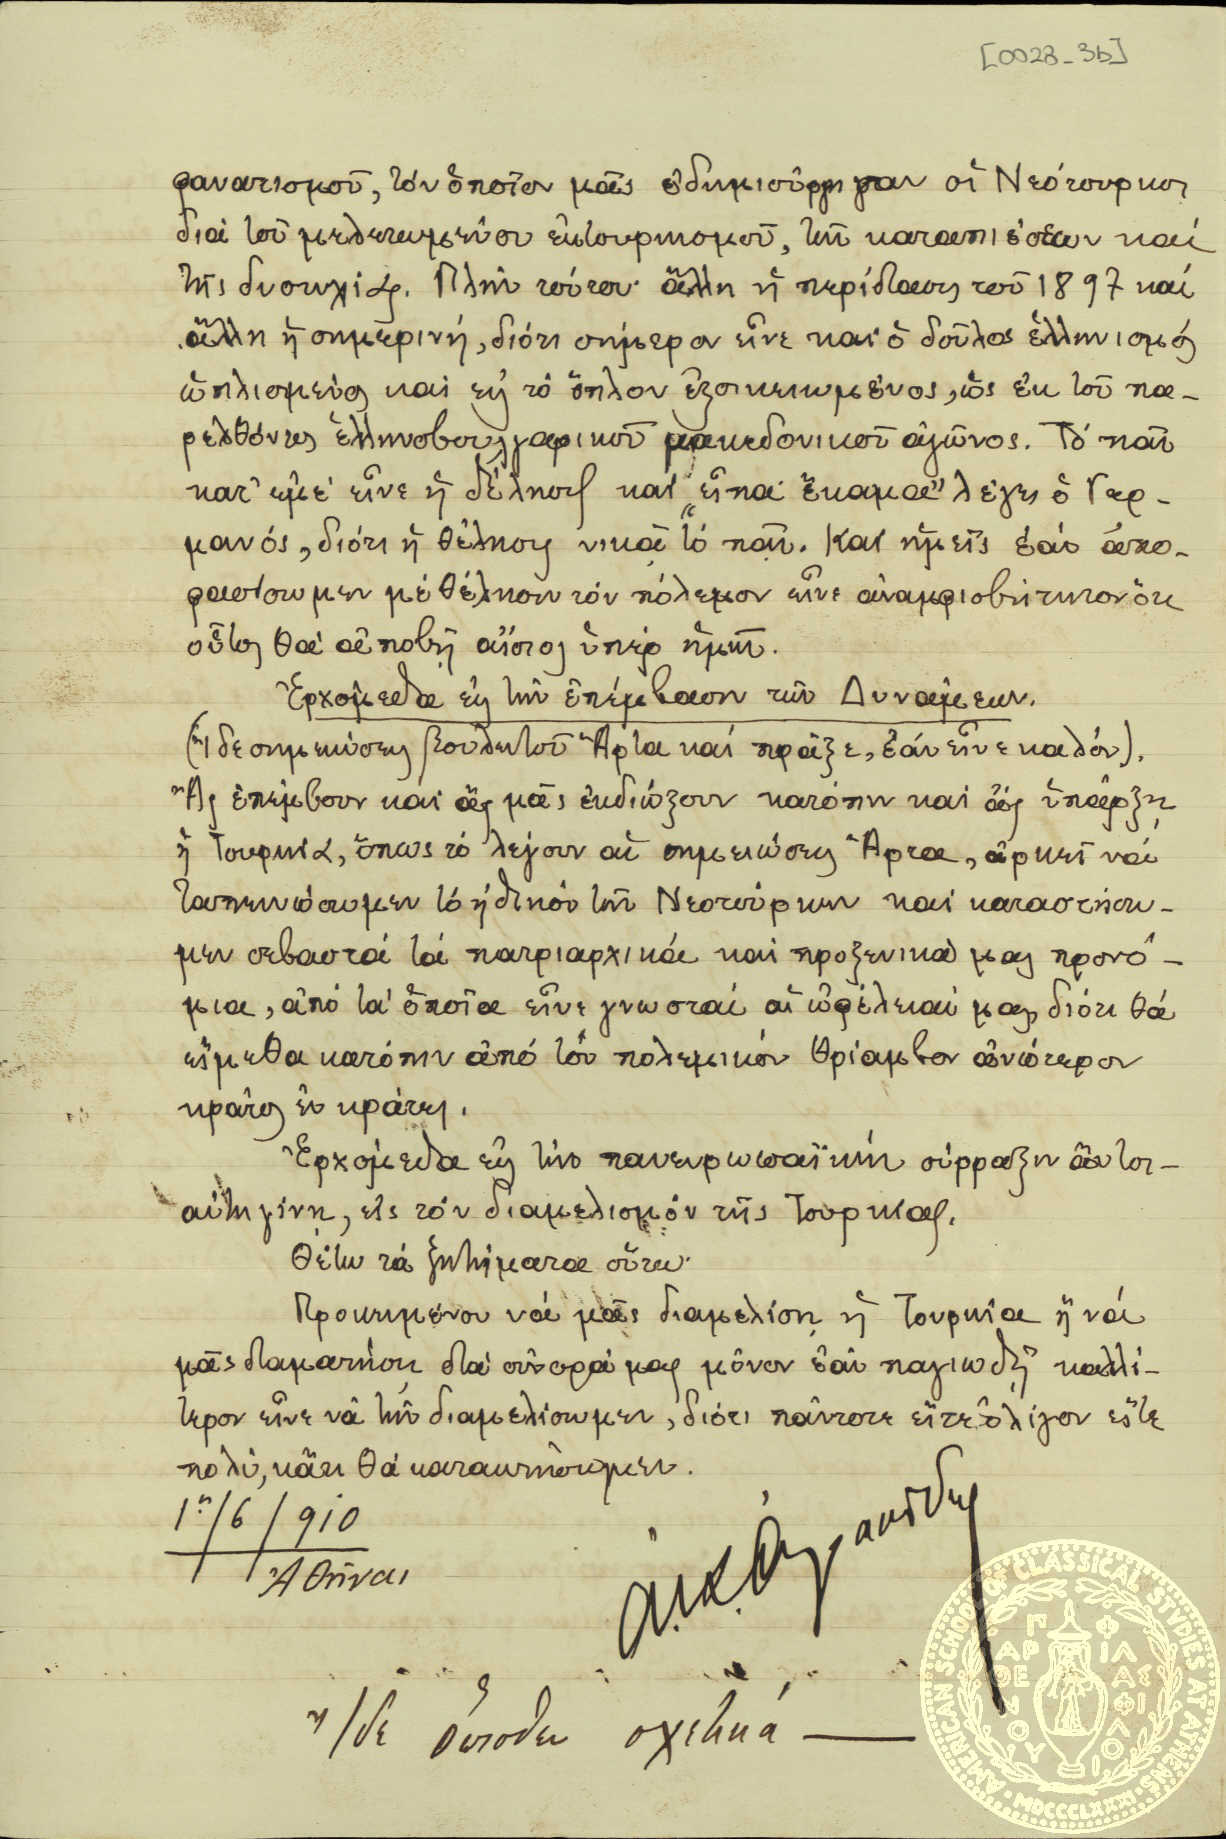 [0028_3b]
φανατισμοῦ, τὸν ὁποῖον μᾶς ἐδημιούργησαν οἱ Νεότουρκοι
διὰ τοῦ μελετωμένου ἐκτουρκισμοῦ, τῶν καταπιέσεων καὶ
τῆς δυστυχίας. Πλὴν τούτου ἄλλη ἡ περίστασις τοῦ 1897 καὶ
ἄλλη ἡ σημερινή, διότι σήμερον εἶνε καὶ ὁ δοῦλος ἑλληνισμός
ὡπλισμένος καὶ εἰς τὸ ὅπλον ἐξοικειωμένος, ὡς ἐκ τοῦ πα-
ρελθόντος ἑλληνοβουλγαρικοῦ μακεδονικοῦ ἀγῶνος. Τὸ πᾶν
κατ' ἐμὲ εἶνε ἡ θέλησις καὶ „εἶπα ἔκαμα" λέγει ὁ Γερ-
μανός, διότι ἡ θέλησις νικᾷ τὸ πᾶν. Καὶ ἡμεῖς ἐὰν ἀπο-
φασίσωμεν μὲ θέλησιν τὸν πόλεμον εἶνε ἀναμφισβήτητον ὅτι
οὗτος θὰ ἀποβῇ αἴσιος ὑπὲρ ἡμῶν.
Ἐρχόμεθα εἰς τὴν ἐπέμβασιν τῶν Δυνάμεων.
(Ἴδε σημειώσεις βουλευτοῦ Ἄρτα καὶ πράξε, ἐὰν εἶνε καλόν).
Ἂς ἐπέμβουν καὶ ἂς μᾶς ἐκδιώξουν κατόπιν καὶ ἂς ὑπάρξῃ
ἡ Τουρκία, ὅπως τὸ λέγουν αἱ σημειώσεις Ἄρτα, ἀρκεῖ νὰ
ταπεινώσωμεν τὸ ἠθικὸν τῶν Νεοτούρκων καὶ καταστήσω-
μεν σεβαστὰ τὰ πατριαρχικὰ καὶ προξενικὰ μας προνό-
μια, ἀπὸ τὰ ὁποῖα εἶνε γνωσταὶ αἱ ὠφέλειαί μας, διότι θὰ
εἴμεθα κατόπιν ἀπὸ τὸν πολεμικὸν θρίαμβον ἀνώτερον
κράτος ἐν κράτει.
Ἐρχόμεθα εἰς τὴν πανευρωπαϊκὴν σύρραξιν ἂν τοι-
αύτη γίνῃ, εἰς τὸν διαμελισμὸν τῆς Τουρκίας.
Θέτω τὰ ζητήματα οὕτω·
Προκειμένου νὰ μᾶς διαμελίσῃ ἡ Τουρκία ἢ νὰ
μᾶς σταματήσῃ στὰ σύνορά μας μόνον ἐὰν παγιωθῇ καλλί-
τερον εἶνε νὰ τὴν διαμελίσωμεν, διότι πάντοτε εἴτε ὀλίγον εἴτε
πολύ, κάτι θὰ κατακτήσωμεν.
1η/6/910
Ἀθῆναι
Ἴδε ὄπισθεν σχετικά —
AMERICAN SCHOOL OF CLASSICAL STUDIES AT ATHENS · MDCCCLXXXI ·
ΠΑΡΘΕΝΟΥ ΦΙΛΑΣ ΦΙΛΟΙ